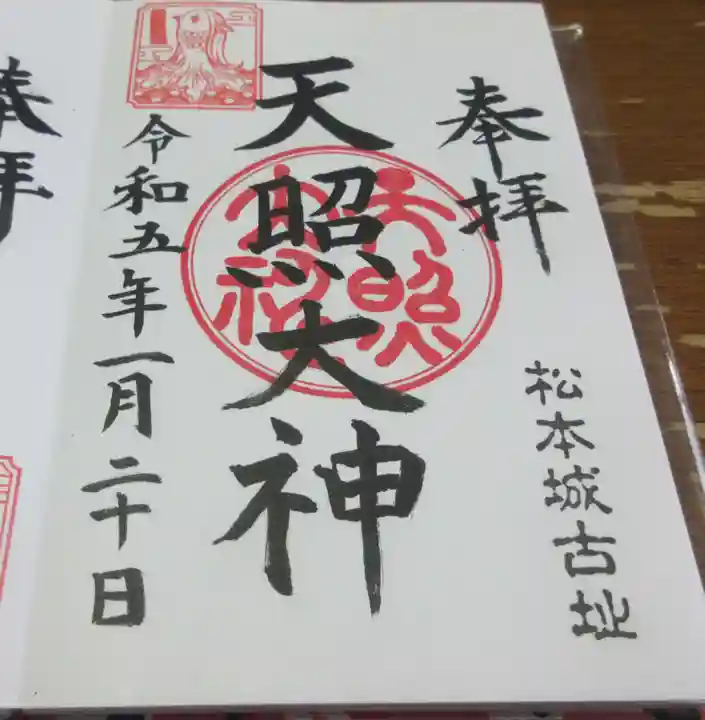 奉拝
松本城古址
天照大神
天照大神
令和五年一月二十日
奉拝